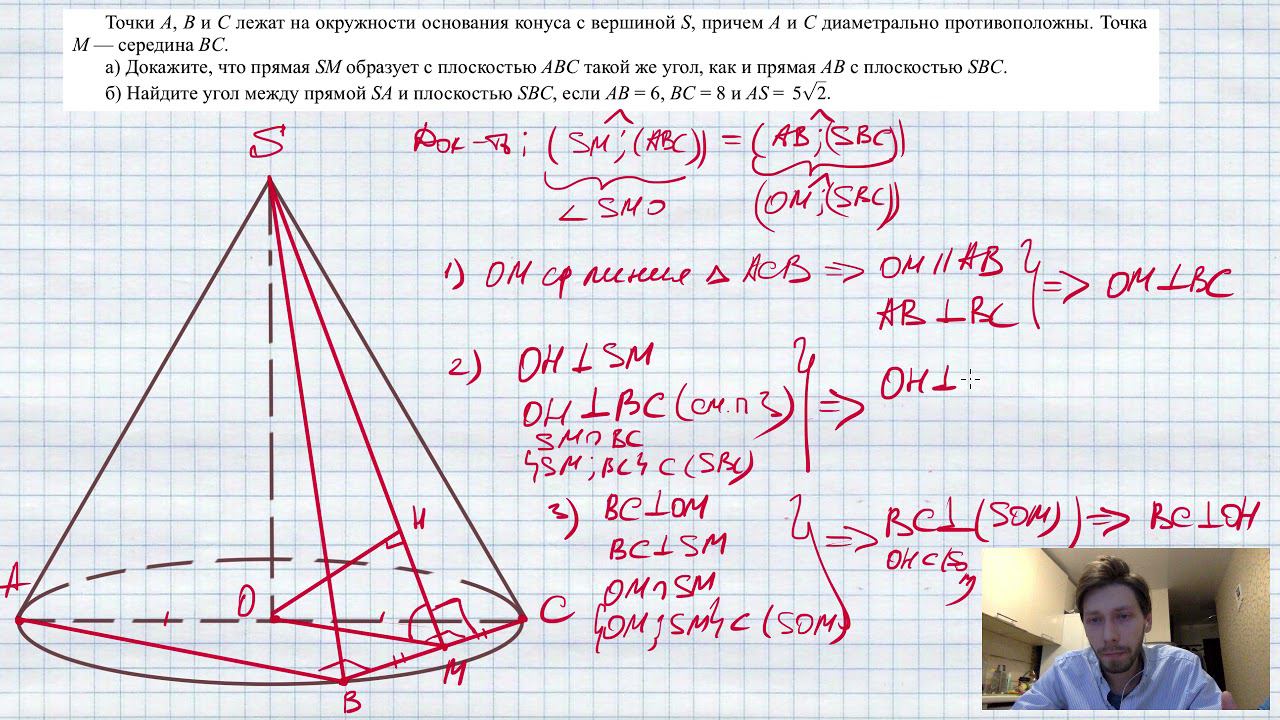 Точки A, B и C лежат на окружности основания конуса с вершиной S, причем A и C диаметрально противоположны. Точка
M — середина BC.
а) Докажите, что прямая SM образует с плоскостью ABC такой же угол, как и прямая AB с плоскостью SBC.
б) Найдите угол между прямой SA и плоскостью SBC, если AB = 6, BC = 8 и AS = 5√2.
S
Док-ть; (SM^;(ABC)) = (AB^;(SBC))
∠ SMO
(OM^;(SBC))
1) OM ср линия Δ ACB ⇒ OM || AB
AB ⊥ BC
⇒ OM ⊥ BC
2) OH ⊥ SM
OH ⊥ BC (см. п 3)
SM ∩ BC
{SM; BC} ⊂ (SBC)
⇒ OH ⊥
3) BC ⊥ OM
BC ⊥ SM
OM ∩ SM
{OM; SM} ⊂ (SOM)
⇒ BC ⊥ (SOM)
OH ⊂ (SOM)
⇒ BC ⊥ OH
H
A
O
C
M
B